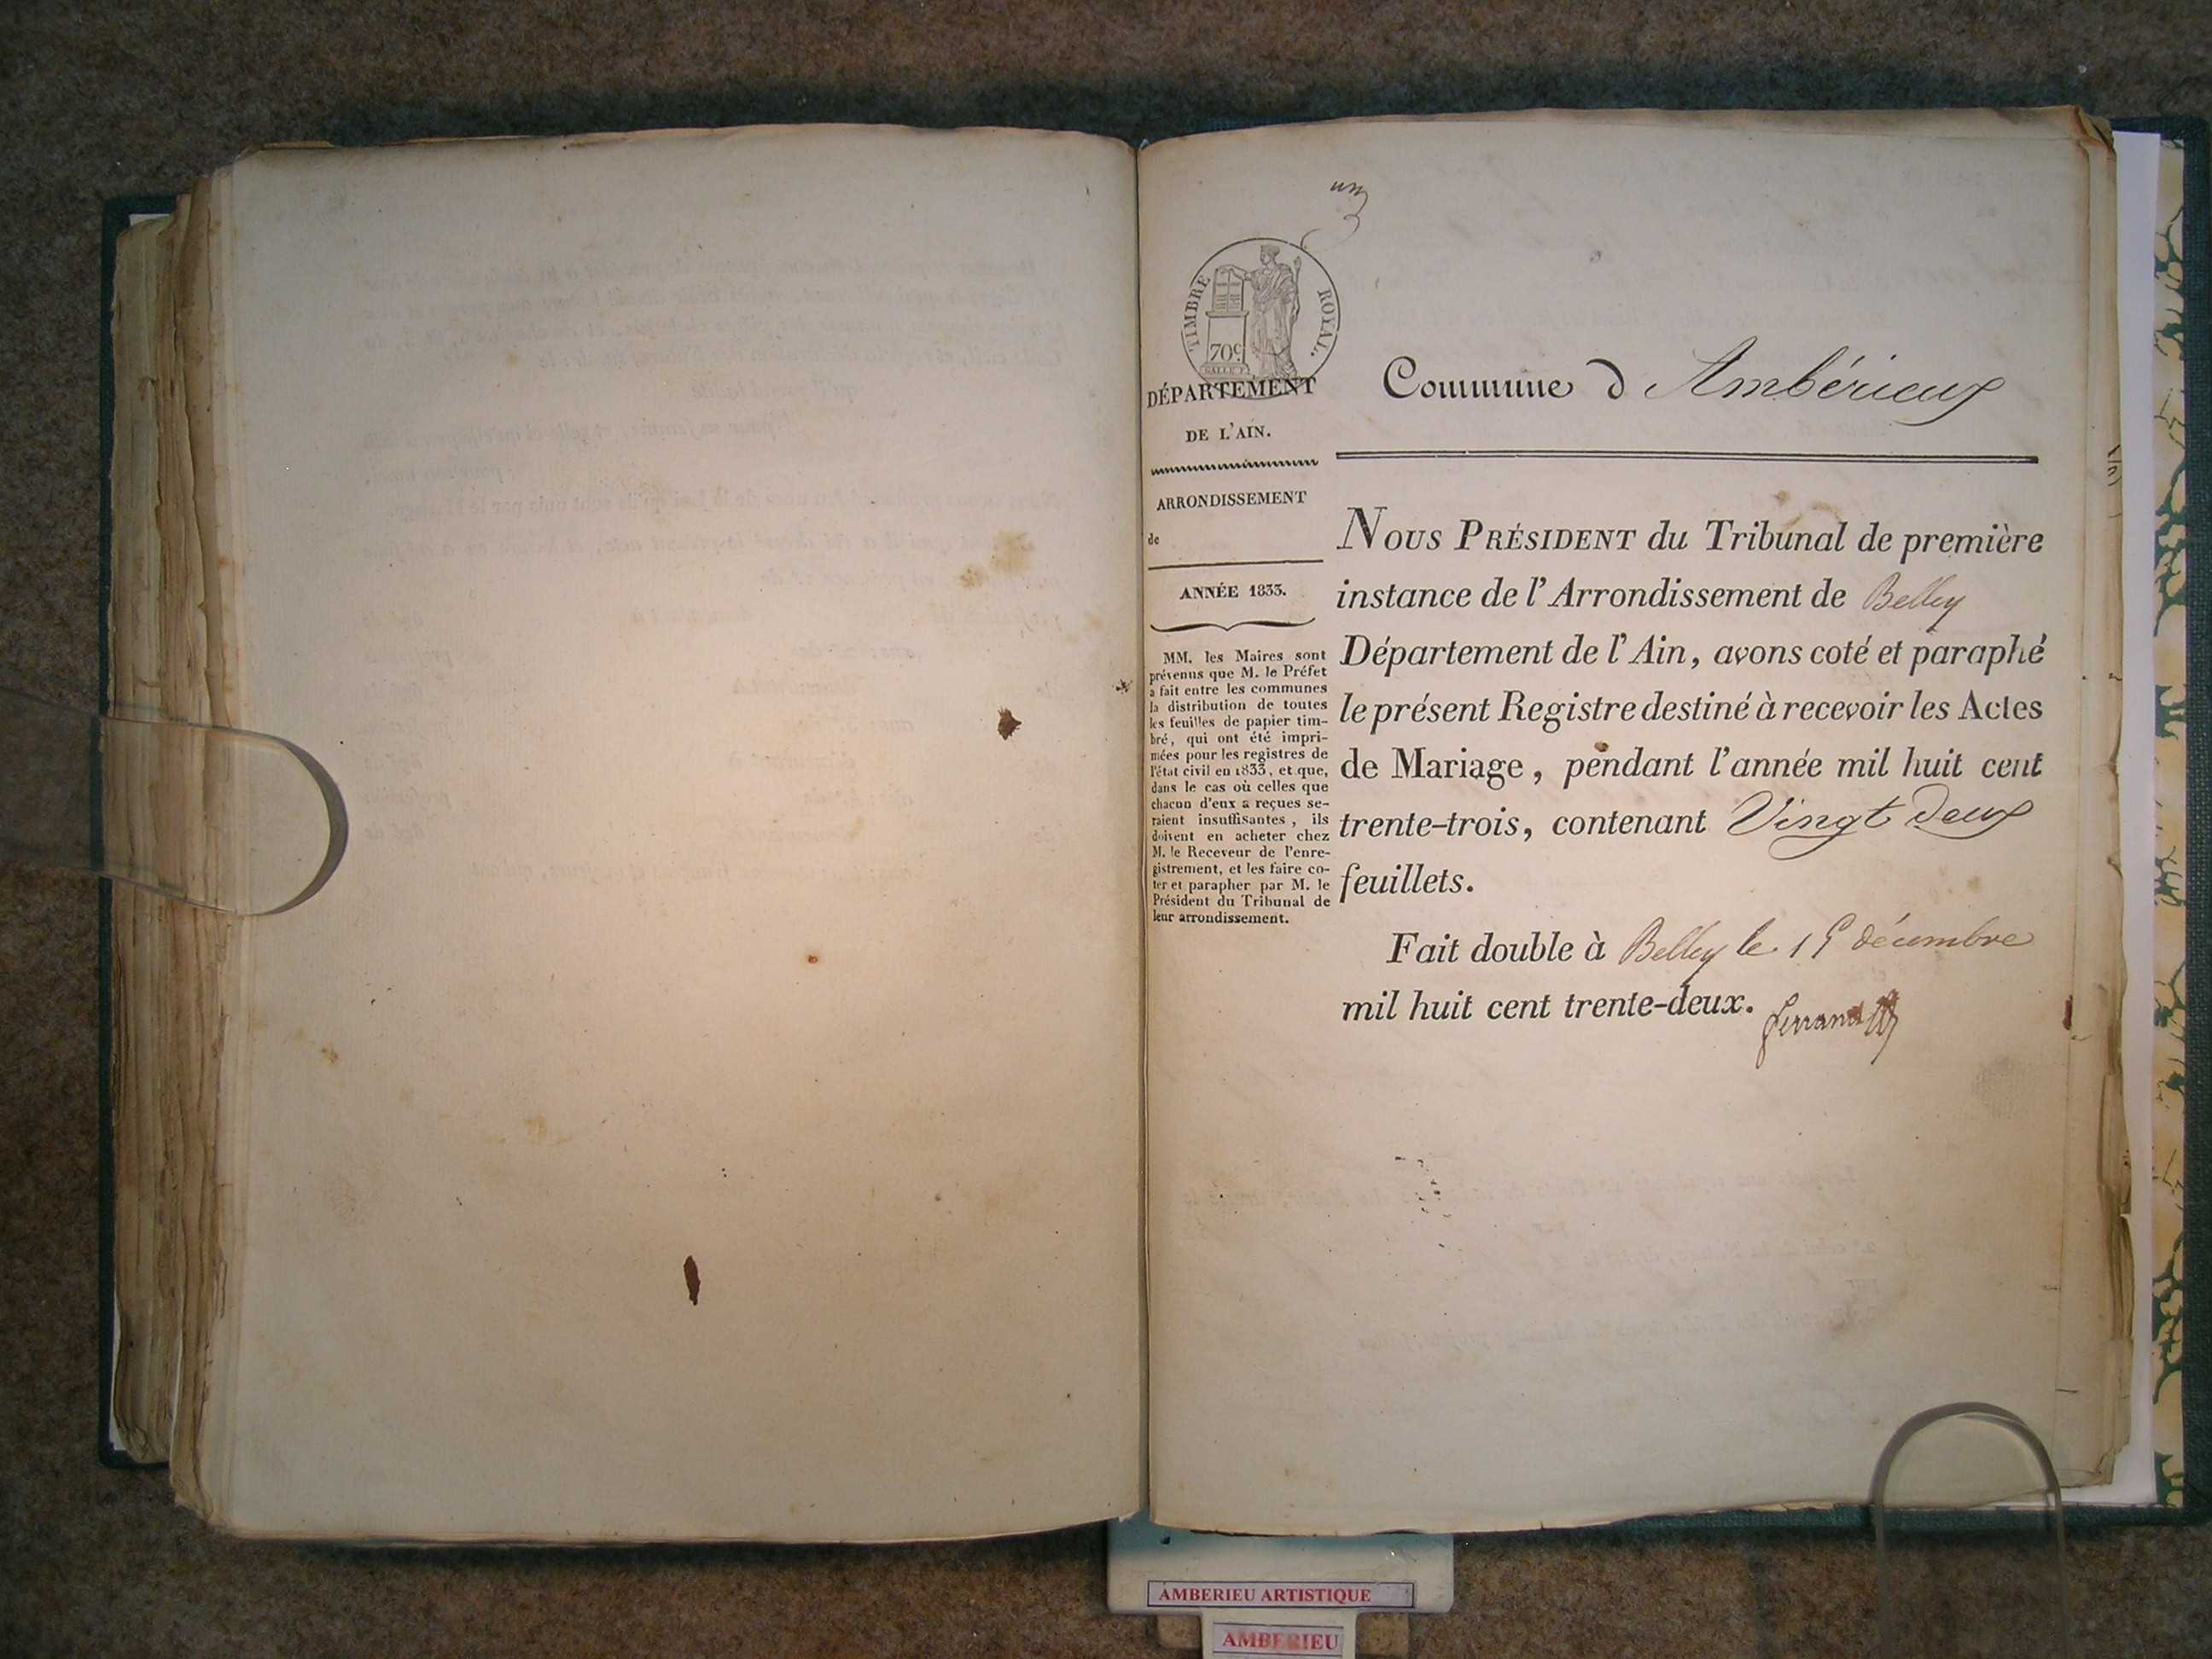 un
TIMBRE ROYAL.
70c
DÉPARTEMENT
DE L'AIN.
ARRONDISSEMENT
de
ANNÉE 1833.
MM. les Maires sont
prévenus que M. le Préfet
a fait entre les communes
la distribution de toutes
les feuilles de papier tim-
bré, qui ont été impri-
mées pour les registres de
l'état civil en 1833, et que,
dans le cas où celles que
chacun d'eux a reçues se-
raient insuffisantes, ils
doivent en acheter chez
M. le Receveur de l'enre-
gistrement, et les faire co-
ter et parapher par M. le
Président du Tribunal de
leur arrondissement.
Commune d Ambérieux
NOUS PRÉSIDENT du Tribunal de première
instance de l'Arrondissement de Belley
Département de l'Ain, avons coté et paraphé
le présent Registre destiné à recevoir les Actes
de Mariage, pendant l'année mil huit cent
trente-trois, contenant Vingt deux
feuillets.
Fait double à Belley le décembre
mil huit cent trente-deux.
Ferrand
AMBERIEU ARTISTIQUE
AMBERIEU